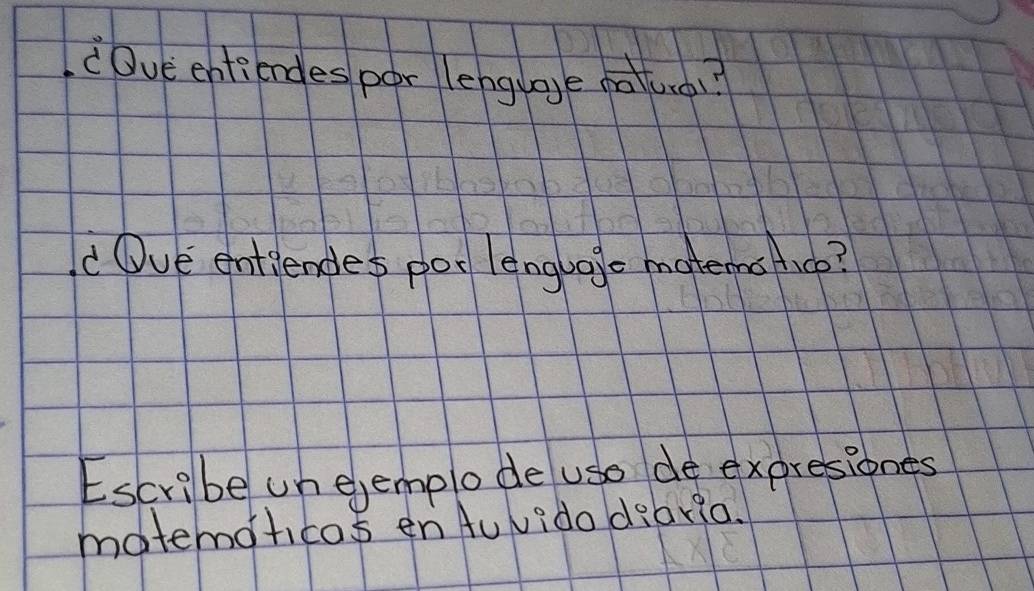 ¿Qué entiendes por lenguaje natural?
¿Qué entiendes por lenguaje matemático?
Escribe un ejemplo de uso de expresiones
matemáticas en tu vida diaria.